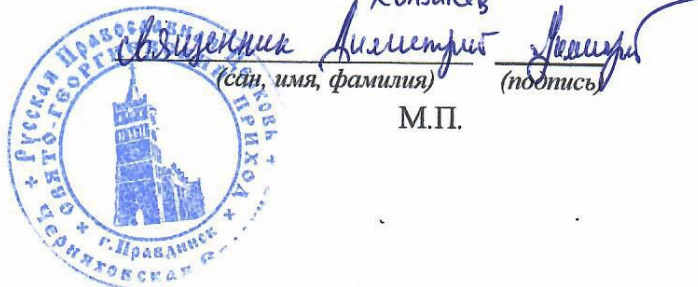 священник Димитрий
(сан, имя, фамилия) (подпись)
М.П.
Русская Православная Церковь
СВЯТО-ГЕОРГИЕВСКИЙ ПРИХОД
г. Правдинск
Черняховская